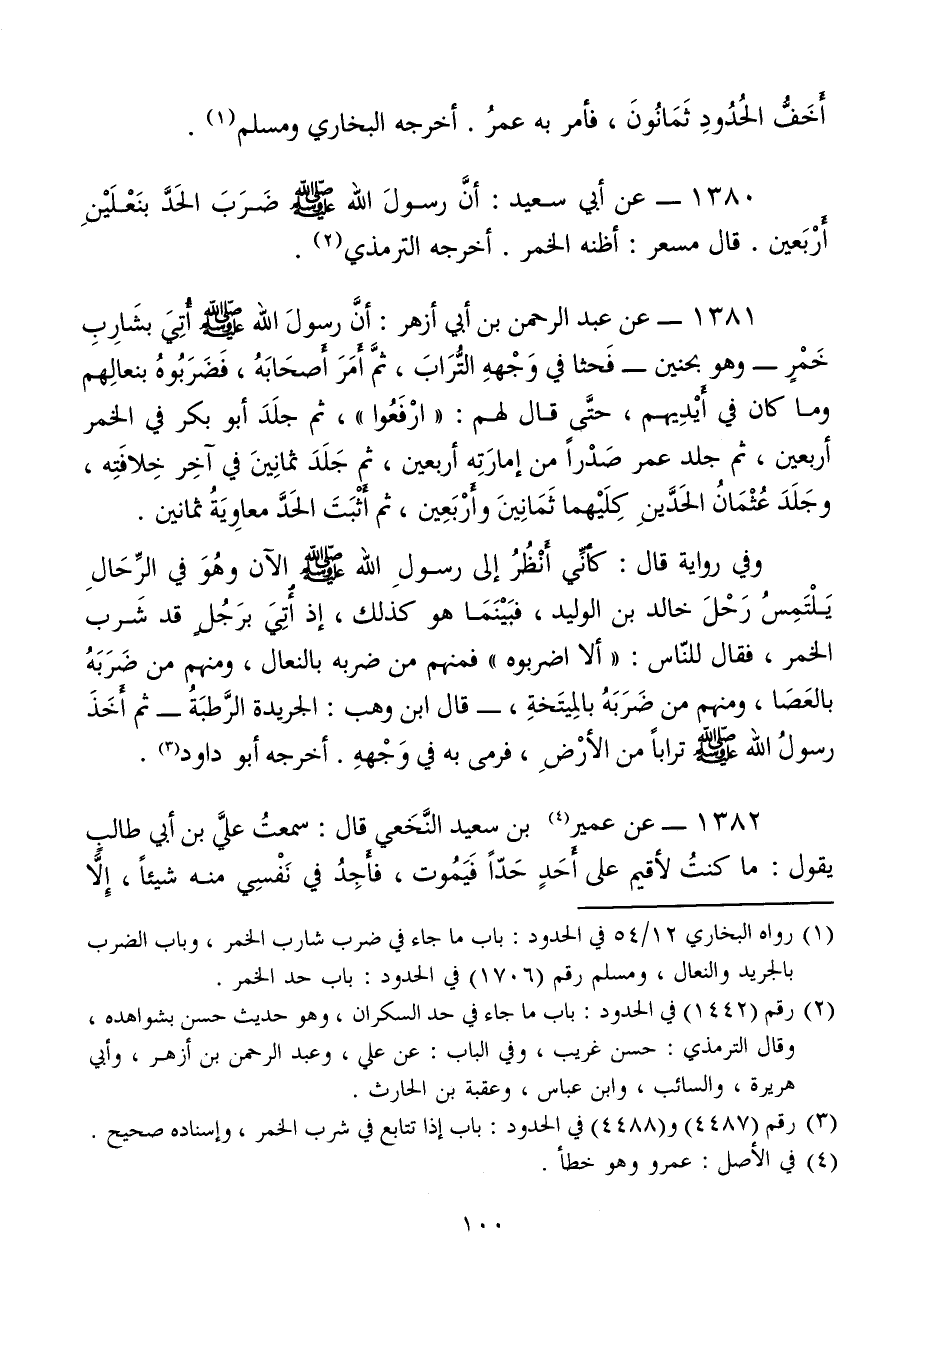 أَخَفُّ الحُدُودِ ثَمَانُونَ ، فأمر به عمرُ . أخرجه البخاري ومسلم(١) .
١٣٨٠ ــ عن أبي سـعيد : أنَّ رسـولَ الله ﷺ ضَـرَبَ الحَدَّ بنَعْـلَيْنِ
أَرْبَعين . قال مسعر : أظنه الخمر . أخرجه الترمذي(٢) .
١٣٨١ ــ عن عبد الرحمن بن أبي أزهر : أنَّ رسولَ الله ﷺ أُتِيَ بشَارِبِ
خَمْرٍ ــ وهو بحنين ــ فَحثا في وَجْههِ التُّرَابَ ، ثمَّ أَمَرَ أَصحَابَهُ ، فَضَرَبُوهُ بنعالِهم
ومـا كان في أَيْدِيهـم ، حتَّى قـال لهـم : « ارْفَعُوا » ، ثم جلَدَ أبو بكر في الخمر
أربعين ، ثم جلد عمر صَدْراً من إمارَتِه أربعين ، ثم جَلَدَ ثمانِينَ في آخِرِ خِلافَتِه ،
وجَلَدَ عُثْمَانُ الحَدَّينِ كِلَيْهِما ثَمَانِينَ وأَرْبَعِين ، ثم أَثْبَتَ الحَدَّ معاوِيَةُ ثمانين .
وفي رواية قال : كأنِّي أَنْظُرُ إلى رسـولِ الله ﷺ الآن وهُوَ في الرِّحَالِ
يَـلْتَمِسُ رَحْلَ خالد بن الوليد ، فبَيْنَمَـا هو كذلك ، إذ أُتِيَ برَجُلٍ قد شَـرب
الخمر ، فقال للنَّاس : « ألا اضربوه » فمنهم من ضربه بالنعال ، ومنهم من ضَرَبَهُ
بالعَصَا ، ومنهم من ضَرَبَهُ بالمِيتَخةِ ، ــ قال ابن وهب : الجريدة الرَّطبَةُ ــ ثم أَخَذَ
رسولُ الله ﷺ تراباً من الأرْضِ ، فرمى به في وَجْههِ . أخرجه أبو داود(٣) .
١٣٨٢ ــ عن عمير(٤) بن سعيد النَّخَعي قال : سمعتُ عليَّ بن أبي طالبٍ
يقول : ما كنتُ لأقيم على أَحَدٍ حَدّاً فَيَمُوت ، فأَجِدُ في نَفْسِي منـه شيئاً ، إلَّا
(١) رواه البخاري ٥٤/١٢ في الحدود : باب ما جاء في ضرب شارب الخمر ، وباب الضرب
بالجريد والنعال ، ومسلم رقم (١٧٠٦) في الحدود : باب حد الخمر .
(٢) رقم (١٤٤٢) في الحدود : باب ما جاء في حد السكران ، وهو حديث حسن بشواهده ،
وقال الترمذي : حسن غريب ، وفي الباب : عن علي ، وعبد الرحمن بن أزهـر ، وأبي
هريرة ، والسائب ، وابن عباس ، وعقبة بن الحارث .
(٣) رقم (٤٤٨٧) و(٤٤٨٨) في الحدود : باب إذا تتابع في شرب الخمر ، وإسناده صحيح .
(٤) في الأصل : عمرو وهو خطأ .
١٠٠